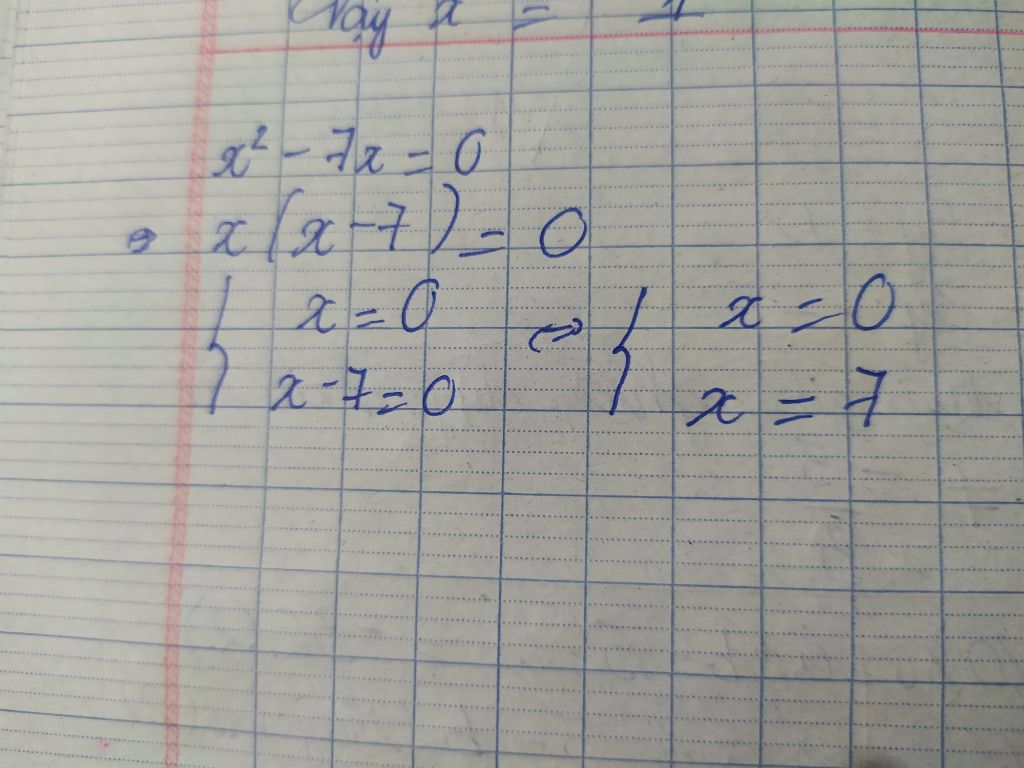 Vậy x = 
x² - 7x = 0
⇒ x(x - 7) = 0
{ x = 0 ⇔ { x = 0
x - 7 = 0 x = 7